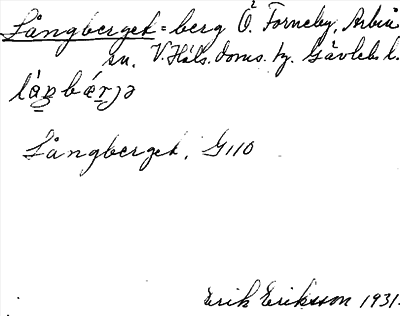 Långberget = berg Ö. Forneby, Arbrå
sn. V. Häls. doms. hg. Gävleb. l.
Långberget, G110
Erik Eriksson 1931.